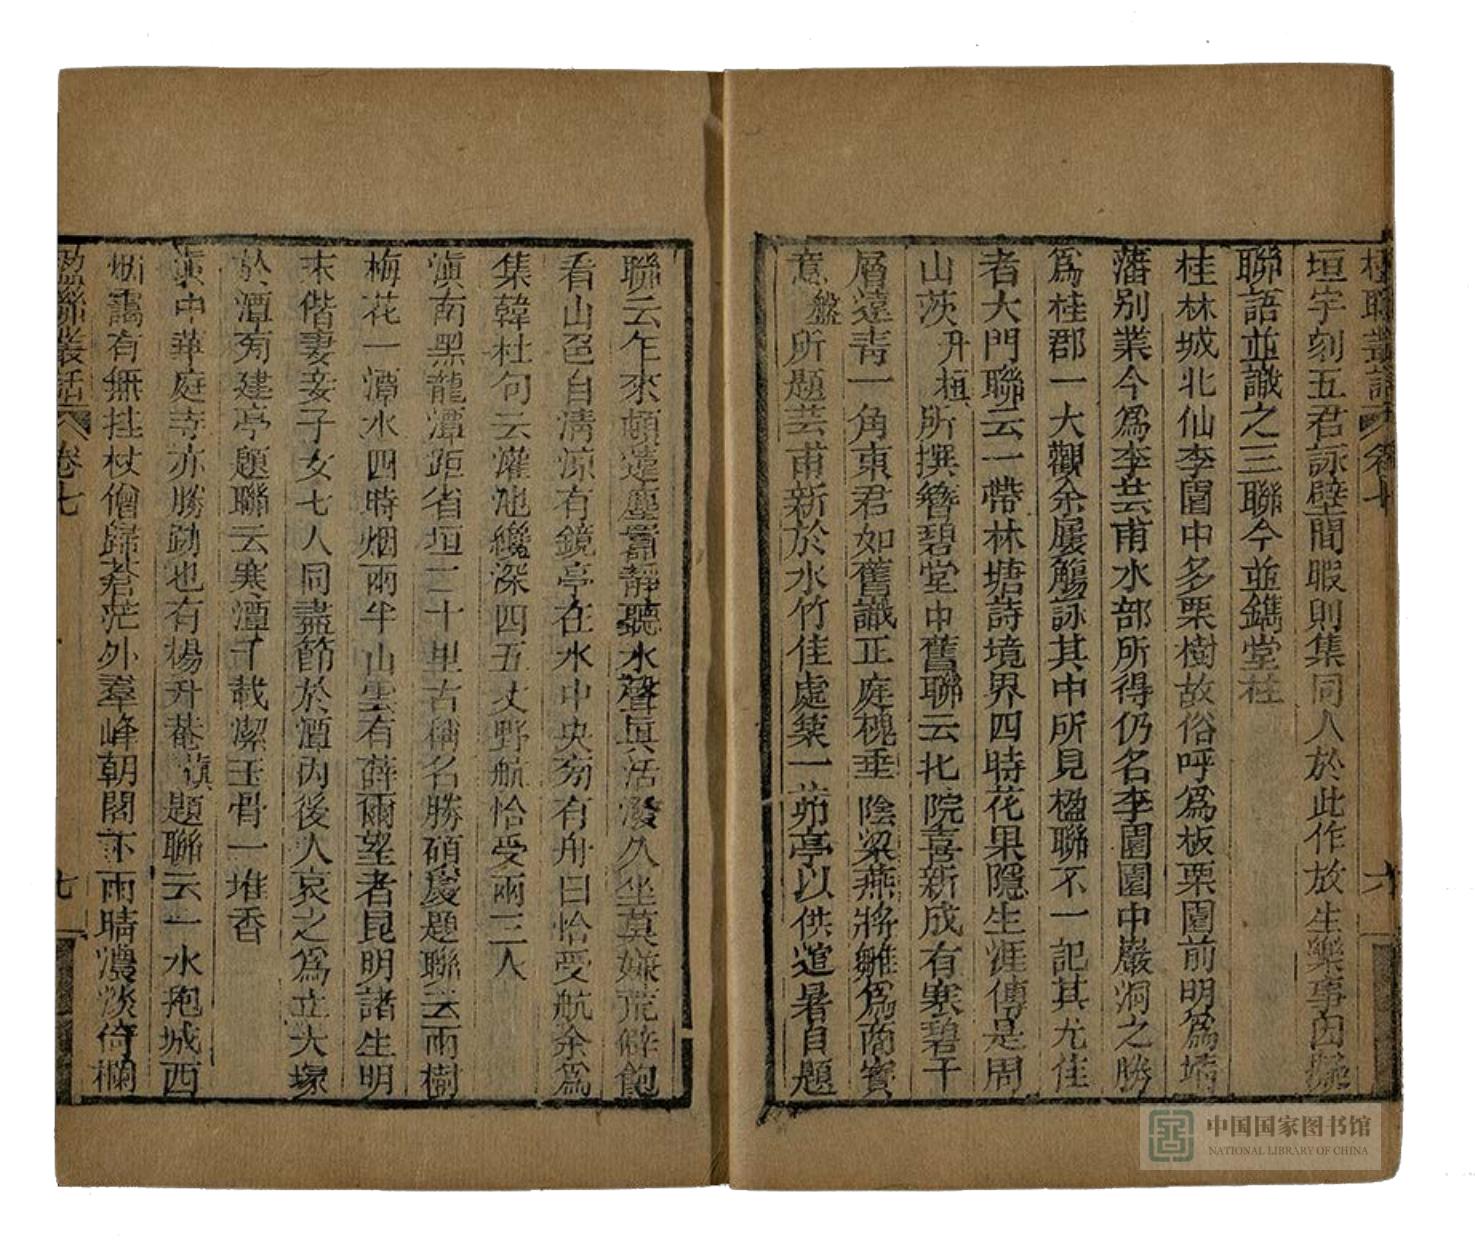 楹聯叢話 卷七 六
垣宇刻五君詠壁間暇則集同人於此作放生樂事因擬
聯語並識之三聯今並鐫堂柱
桂林城北仙李園中多栗樹故俗呼為板栗園前明為靖
藩別業今為李芸甫水部所得仍名李園園中巖洞之勝
為桂郡一大觀余屢觴詠其中所見楹聯不一記其尤佳
者大門聯云一帶林塘詩境界四時花果隱生涯傳是周
山茨升桓所撰簪碧堂中舊聯云北院喜新成有寒碧千
層遠青一角東君如舊識正庭槐垂陰梁燕將雛為商寶
意盤所題芸甫新於水竹佳處築一茆亭以供逭暑自題
聯云年來頓遠塵囂靜聽水聲真活潑久坐莫嫌荒僻飽
看山色自清涼有鏡亭在水中央旁有舟曰恰受航余為
集韓杜句云灌池纔深四五丈野航恰受兩三人
滇南黑龍潭距省垣二十里古稱名勝碩慶題聯云兩樹
梅花一潭水四時烟雨半山雲有薛爾望者昆明諸生明
末偕妻妾子女七人同盡節於潭內後人哀之為立大塚
於潭旁建亭題聯云寒潭千載潔玉骨一堆香
滇中華庭寺亦勝蹟也有楊升菴慎題聯云一水抱城西
烟靄有無拄杖僧歸蒼茫外羣峰朝閣下雨晴濃淡倚欄
楹聯叢話 卷七 七
中国国家图书馆
NATIONAL LIBRARY OF CHINA